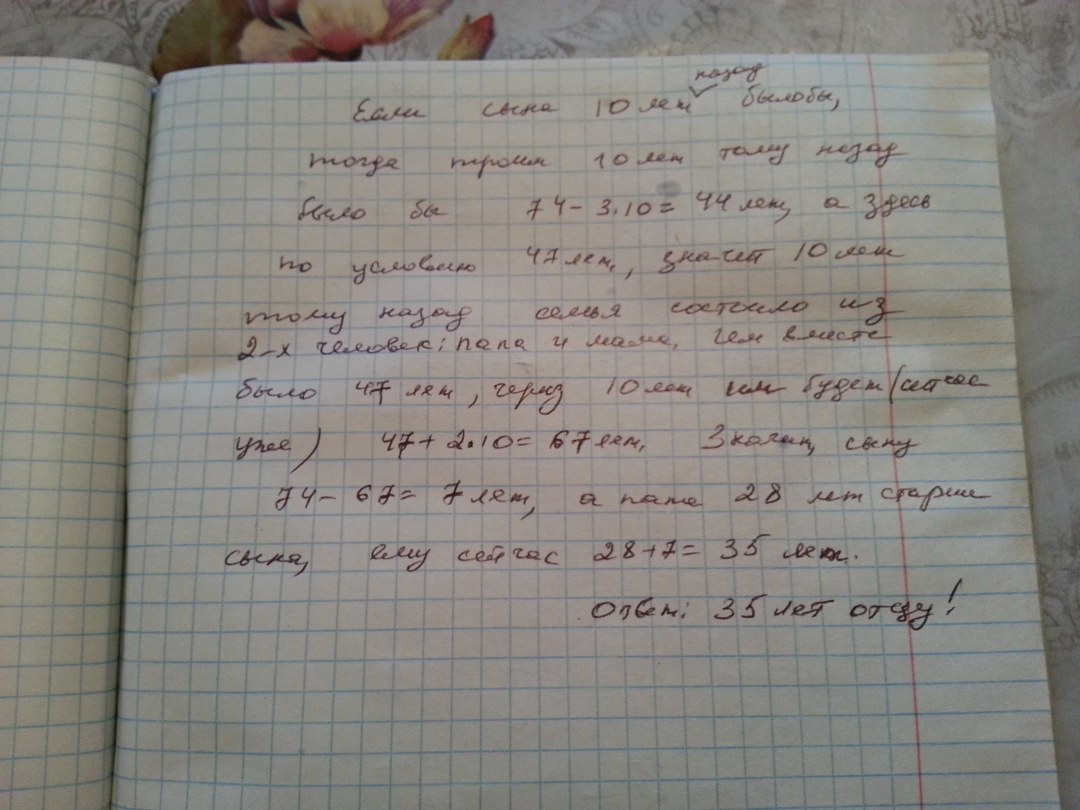 Если сына 10 лет назад было бы,
тогда троим 10 лет тому назад
было бы 74-3.10= 44 лет, а здесь
по условию 47 лет, значит 10 лет
тому назад семья состоило из
2-х человек: папа и мама, чем вместе
было 47 лет, через 10 лет им будет (сейчас
уже) 47+2.10= 67 лет. Значит, сыну
74-67= 7 лет, а папа 28 лет старше
сына, ему сейчас 28+7= 35 лет.
Ответ: 35 лет отцу!